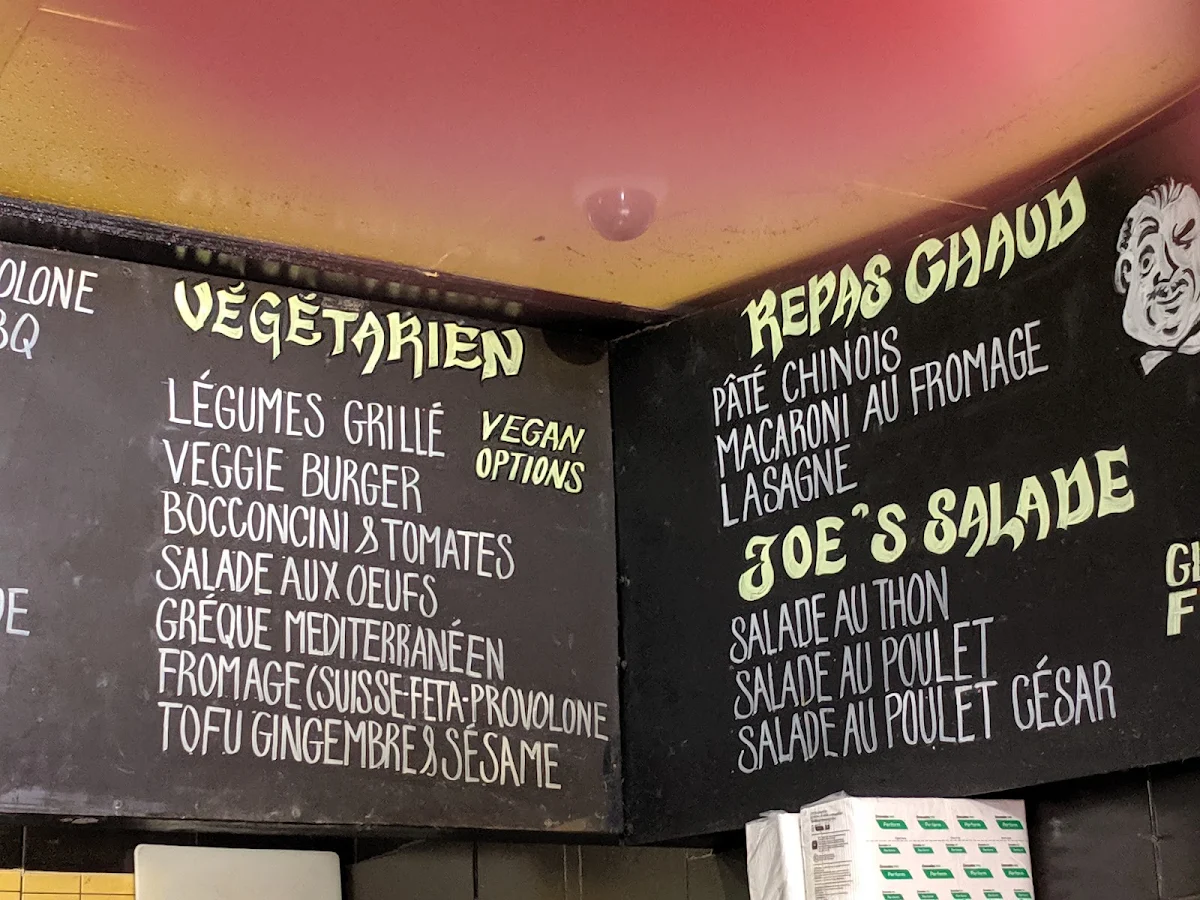 VÉGÉTARIEN
LÉGUMES GRILLÉ
VEGAN
OPTIONS
VEGGIE BURGER
BOCCONCINI & TOMATES
SALADE AUX OEUFS
GRÉQUE MEDITERRANÉEN
FROMAGE (SUISSE-FETA-PROVOLONE
TOFU GINGEMBRE & SÉSAME
REPAS CHAUD
PÂTÉ CHINOIS
MACARONI AU FROMAGE
LASAGNE
JOE'S SALADE
SALADE AU THON
SALADE AU POULET
SALADE AU POULET CÉSAR